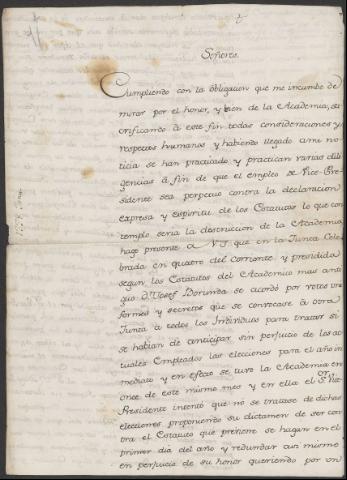 Señores.
Cumpliendo con la obligacion que me incumbe de
mirar por el honor, y bien de la Academia, sa
crificando à este fin todas consideraciones y
respetos humanos y habiendo llegado à mi no
ticia se han practicado y practican varias dili
gencias à fin de que el empleo de Vice-Pre
sidente sea perpetuo contra la declaracion
expresa y espiritu de los Estatutos lo que con
templo seria la destruccion de la Academia
hago presente à V.S. que en la Junta Cele
brada en quatro del corriente y presidida
segun los Estatutos del Academico mas anti
guo Dn. Josef se acordó por votos uni
formes y secretos que se convocase à otra
Junta à todos los Individuos para tratar si
se habian de anticipar sin perjuicio de los ac
tuales Empleados las elecciones para el año in
mediato y en efecto se tuvo la Academia en
once de este mismo mes y en ella el Sor. Vice
Presidente intentó que no se tratase de dichas
elecciones proponiendo su dictamen de ser con
tra el Estatuto que previene se hagan en el
primer dia del año y redundar asi mismo
en perjuicio de su honor queriendo por un